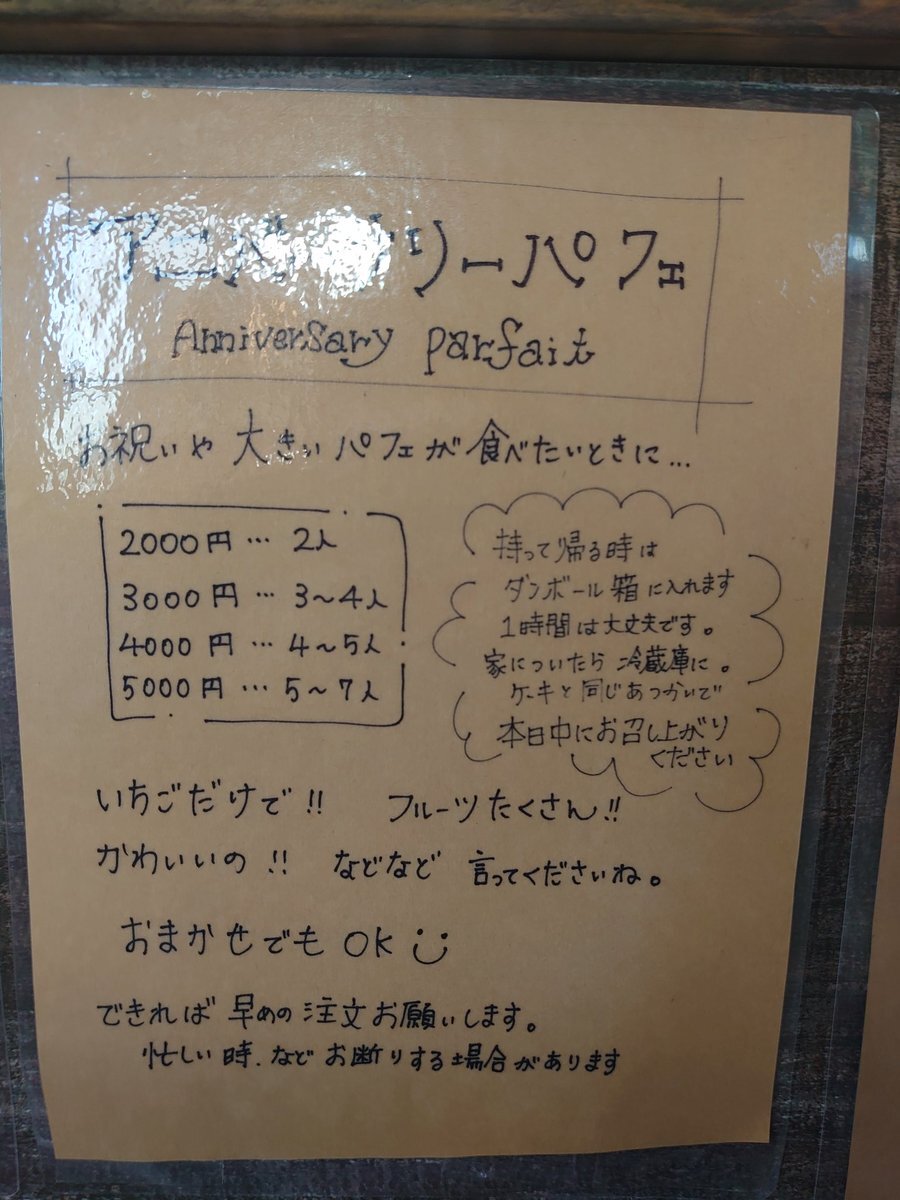 アニバーサリーパフェ
Anniversary parfait
お祝いや大きいパフェが食べたいときに…
2000円…2人
3000円…3〜4人
4000円…4〜5人
5000円…5〜7人
持って帰る時は
ダンボール箱に入れます
1時間は大丈夫です。
家についたら冷蔵庫に。
ケーキと同じあつかいで
本日中にお召し上がり
ください
いちごだけで!! フルーツたくさん!!
かわいいの!! などなど 言ってくださいね。
おまかせでもOK
できれば早めの注文お願いします。
忙しい時.などお断りする場合があります